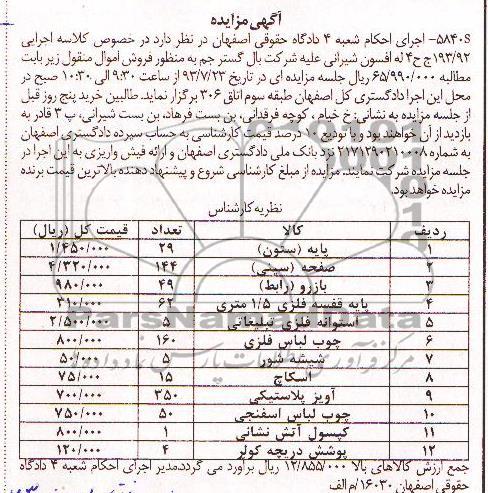 آگهی مزایده
۵۸۴۰S- اجرای احکام شعبه ۴ دادگاه حقوقی اصفهان در نظر دارد در خصوص کلاسه اجرایی
۱۹۳/۹۲ ج ح ۴ له افسون شیرانی علیه شرکت بال گستر جم به منظور فروش اموال منقول زیر بابت
مطالبه ۶۵/۹۹۰/۰۰۰ ریال جلسه مزایده ای در تاریخ ۹۳/۷/۲۳ از ساعت ۹:۳۰ الی ۱۰:۳۰ صبح در
محل این اجرا دادگستری کل اصفهان طبقه سوم اتاق ۳۰۶ برگزار نماید. طالبین خرید پنج روز قبل
از جلسه مزایده به نشانی: خ خیام ، کوچه فرقدانی، بن بست فرهاد، بن بست شیرانی، پ ۳ قادر به
بازدید از آن خواهند بود و با تودیع ۱۰ درصد قیمت کارشناسی به حساب سپرده دادگستری اصفهان
به شماره ۲۱۷۱۲۹۰۲۱۰۰۰۸ نزد بانک ملی دادگستری اصفهان و ارائه فیش واریزی به این اجرا در
جلسه مزایده شرکت نمایند. مزایده از مبلغ کارشناسی شروع و پیشنهاد دهنده بالاترین قیمت برنده
مزایده خواهد بود.
نظریه کارشناس
ردیف کالا تعداد قیمت کل (ریال)
۱ پایه (ستون) ۲۹ ۱/۴۵۰/۰۰۰
۲ صفحه (سینی) ۱۴۴ ۴/۳۲۰/۰۰۰
۳ بازرو (رابط) ۴۹ ۹۸۰/۰۰۰
۴ پایه قفسه فلزی ۱/۵ متری ۶۲ ۳۱۰/۰۰۰
۵ استوانه فلزی تبلیغاتی ۵ ۲/۵۰۰/۰۰۰
۶ چوب لباس فلزی ۱۶۰ ۸۰۰/۰۰۰
۷ شیشه شور ۵ ۵۰/۰۰۰
۸ اسکاچ ۱۵ ۷۵/۰۰۰
۹ آویز پلاستیکی ۳۵۰ ۷۰۰/۰۰۰
۱۰ چوب لباس اسفنجی ۵۰ ۷۵۰/۰۰۰
۱۱ کپسول آتش نشانی ۱ ۸۰۰/۰۰۰
۱۲ پوشش دریچه کولر ۴ ۱۲۰/۰۰۰
جمع ارزش کالاهای بالا ۱۲/۸۵۵/۰۰۰ ریال برآورد می گردد.مدیر اجرای احکام شعبه ۴ دادگاه
حقوقی اصفهان ۱۶۰۳۰/م الف
ParsNamadData